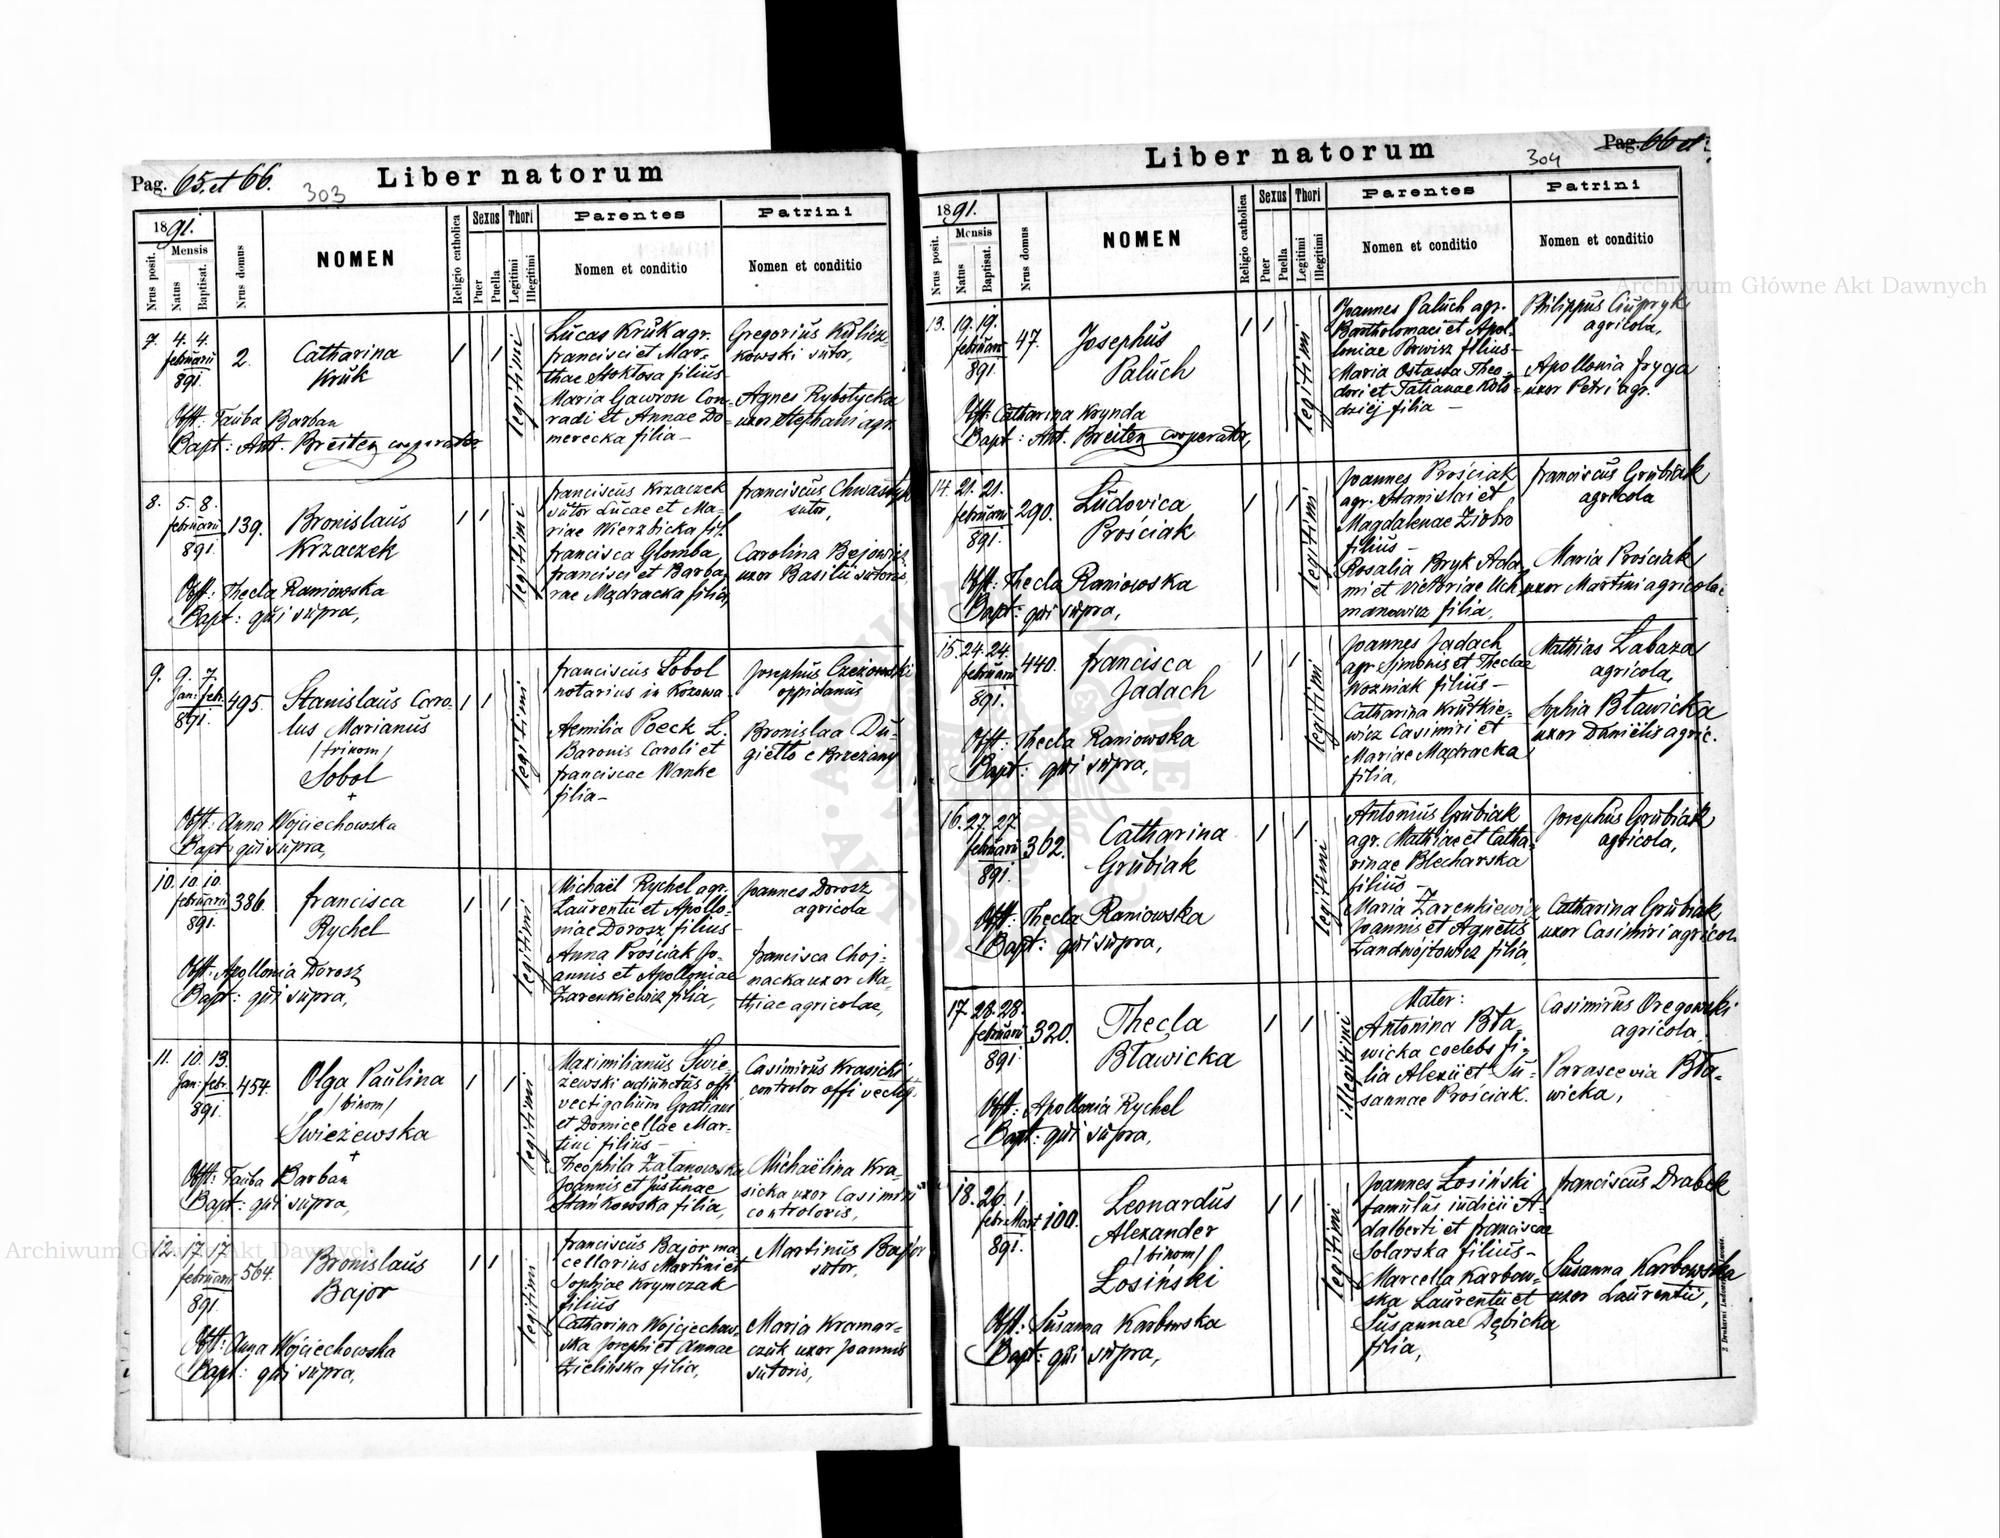 Pag. 65. et 66.
303
Liber natorum
1891.
Nrus posit.
Mensis
Natus
Baptisat.
Nrus domus
NOMEN
Religio catholica
Sexus
Puer
Puella
Thori
Legitimi
Illegitimi
Parentes
Nomen et conditio
Patrini
Nomen et conditio
7. 4. 4.
februarii
891.
2.
Catharina
Kruk
Obst: Tauba Barban
Bapt: Ant. Breiten cooperator
legitimi
Lucas Kruk agr.
francisci et Mar-
thae Stoktosa filius
Maria Gawron Con-
radi et Annae Do-
merecka filia –
Gregorius Kulisz-
kowski sutor,
Agnes Rybotycka
uxor Stephani agr.
8. 5. 8.
februarii
891.
139.
Bronislaus
Krzaczek
Obst: Thecla Raniowska
Bapt: qui supra,
legitimi
franciscus Krzaczek
sutor Lucae et Ma-
riae Wierzbicka fil.
francisca Glomba
francisci et Barba-
rae Mądracka filia,
franciscus Chwastyk
sutor,
Carolina Bejowicz
uxor Basilii sutoris,
9. 9. 7.
Jan: febr.
891.
495.
Stanislaus Caro-
lus Marianus
/trinom/
Sobol
+
Obst: Anna Wojciechowska
Bapt: qui supra,
legitimi
franciscus Sobol
notarius in Kozowa
Aemilia Poeck L.
Baronis Caroli et
franciscae Wanke
filia –
Josephus Czeżowski
oppidanus
Bronislaa Du-
gietto e Brzeżany
10. 10. 10.
februarii
891.
386.
francisca
Rychel
Obst: Apollonia Dorosz
Bapt: qui supra,
legitimi
Michaël Rychel agr.
Laurentii et Apollo-
niae Dorosz filius –
Anna Prościak Jo-
annis et Apolloniae
Zarenkiewicz filia,
Joannes Dorosz
agricola
francisca Choj-
nacka uxor Ma-
thiae agricolae,
11. 10. 13.
Jan: febr.
891.
454.
Olga Paulina
/binom/
Swieżewska
+
Obst: Tauba Barban
Bapt: qui supra,
legitimi
Maximilianus Swie-
żewski adiunctus offi
vectigalium Gratiani
et Domicellae Mar-
tini filius –
Theophila Zatanowska
Joannis et Justinae
Stańkowska filia,
Casimirus Krasicki
controlor offi vectig.
Michaëlina Kra-
sicka uxor Casimiri
controloris,
12. 17. 17.
februarii
891.
564.
Bronislaus
Bajor
Obst: Anna Wojciechowska
Bapt: qui supra,
legitimi
franciscus Bajor ma
cellarius Martini et
Sophiae Krymczak
filius
Catharina Wojciechow-
ska Josephi et Annae
Zielińska filia,
Martinus Bajor
sutor,
Maria Kramar-
czuk uxor Joannis
sutoris,
Liber natorum
304
Pag. 66 et
1891.
Nrus posit.
Mensis
Natus
Baptisat.
Nrus domus
NOMEN
Religio catholica
Sexus
Puer
Puella
Thori
Legitimi
Illegitimi
Parentes
Nomen et conditio
Patrini
Nomen et conditio
13. 19. 19.
februarii
891.
47.
Josephus
Paluch
Obst: Catharina Krynda
Bapt: Ant. Breiten cooperator,
legitimi
Joannes Paluch agr.
Bartholomaei et Apol-
loniae Porwisz filius –
Maria Ostasda Theo-
dori et Tatianae Koło-
dziej filia –
Philippus Ciupryk
agricola,
Apollonia fryga
uxor Petri agr.
14. 21. 21.
februarii
891.
290.
Ludovica
Prościak
Obst: Thecla Raniowska
Bapt: qui supra,
legitimi
Joannes Prościak
agr. Stanislai et
Magdalenae Ziobro
filius –
Rosalia Bryk Ada
mi et Victoriae Uch
manowicz filia,
franciscus Grubiak
agricola
Maria Prościak
uxor Martini agricolae
15. 24. 24.
februarii
891.
440.
francisca
Jadach
Obst: Thecla Raniowska
Bapt: qui supra,
legitimi
Joannes Jadach
agr. Simonis et Theclae
Wozniak filius –
Catharina Krutkie-
wicz Casimiri et
Mariae Mądracka
filia,
Mathias Łabaza
agricola,
Sophia Bławicka
uxor Danielis agric.
16. 27. 27.
februarii
891.
362.
Catharina
Grubiak
Obst: Thecla Raniowska
Bapt: qui supra,
legitimi
Antonius Grubiak
agr. Mathiae et Catha-
rinae Blecharska
filius –
Maria Zarenkiewicz
Joannis et Agnetis
Landwójtowicz filia,
Josephus Grubiak
agricola,
Catharina Grubiak
uxor Casimiri agricol.
17. 28. 28.
februarii
891.
320.
Thecla
Bławicka
Obst: Apollonia Rychel
Bapt: qui supra,
illegitimi
Mater:
Antonina Bła-
wicka coelebs fi-
lia Alexii et Su-
sannae Prościak.
Casimirus Oregowski
agricola,
Parascevia Bła-
wicka,
18. 26. 1.
febr Mart
891.
100.
Leonardus
Alexander
/binom/
Łosiński
Obst: Susanna Karbowska
Bapt: qui supra,
legitimi
Joannes Łosiński
famulus iudicii A-
dalberti et franciscae
Solarska filius –
Marcella Karbow-
ska Laurentii et
Susannae Dębicka
filia,
franciscus Drabek
Susanna Karbowska
uxor Laurentii,
Archiwum Główne Akt Dawnych
Archiwum Główne Akt Dawnych